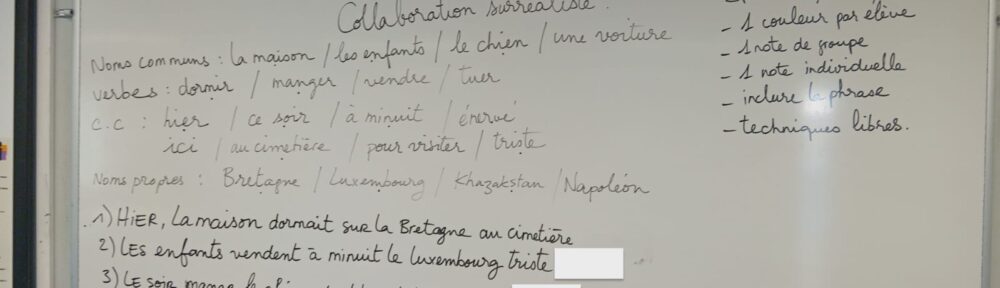 Collaboration surréaliste.
Noms communs : la maison / les enfants / le chien / une voiture
verbes : dormir / manger / vendre / tuer
c.c : hier / ce soir / à minuit / énervé
ici / au cimetière / pour visiter / triste
Noms propres : Bretagne / Luxembourg / Khazakstan / Napoléon
1) HIER, la maison dormait sur la Bretagne au cimetière
2) LES enfants vendent à minuit le Luxembourg triste
3) LE SOIR mange le
- 1 couleur par élève
- 1 note de groupe
- 1 note individuelle
- inclure la phrase
- techniques libres.